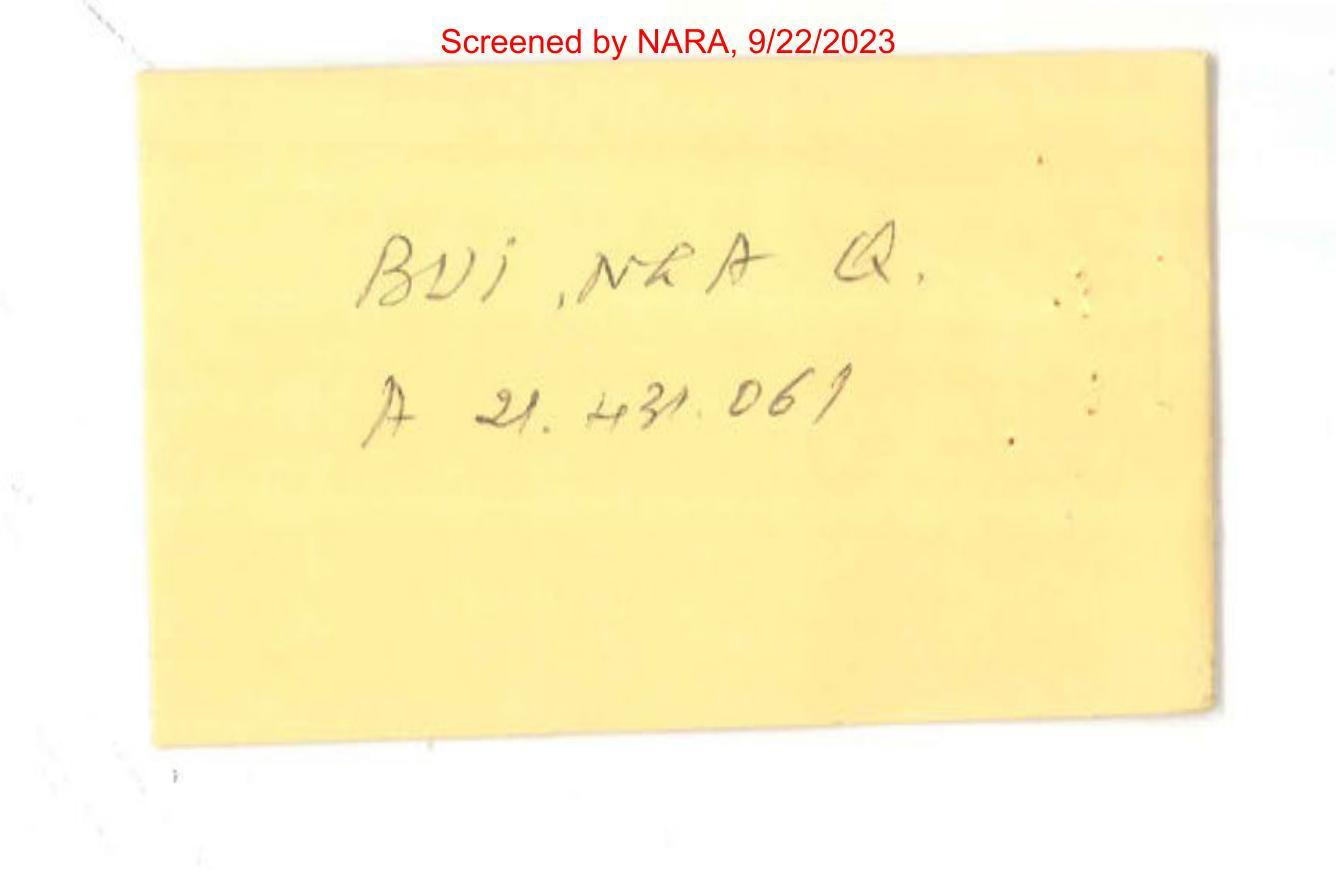 Screened by NARA, 9/22/2023
BUI , NRA Q.
A 21. 431. 061